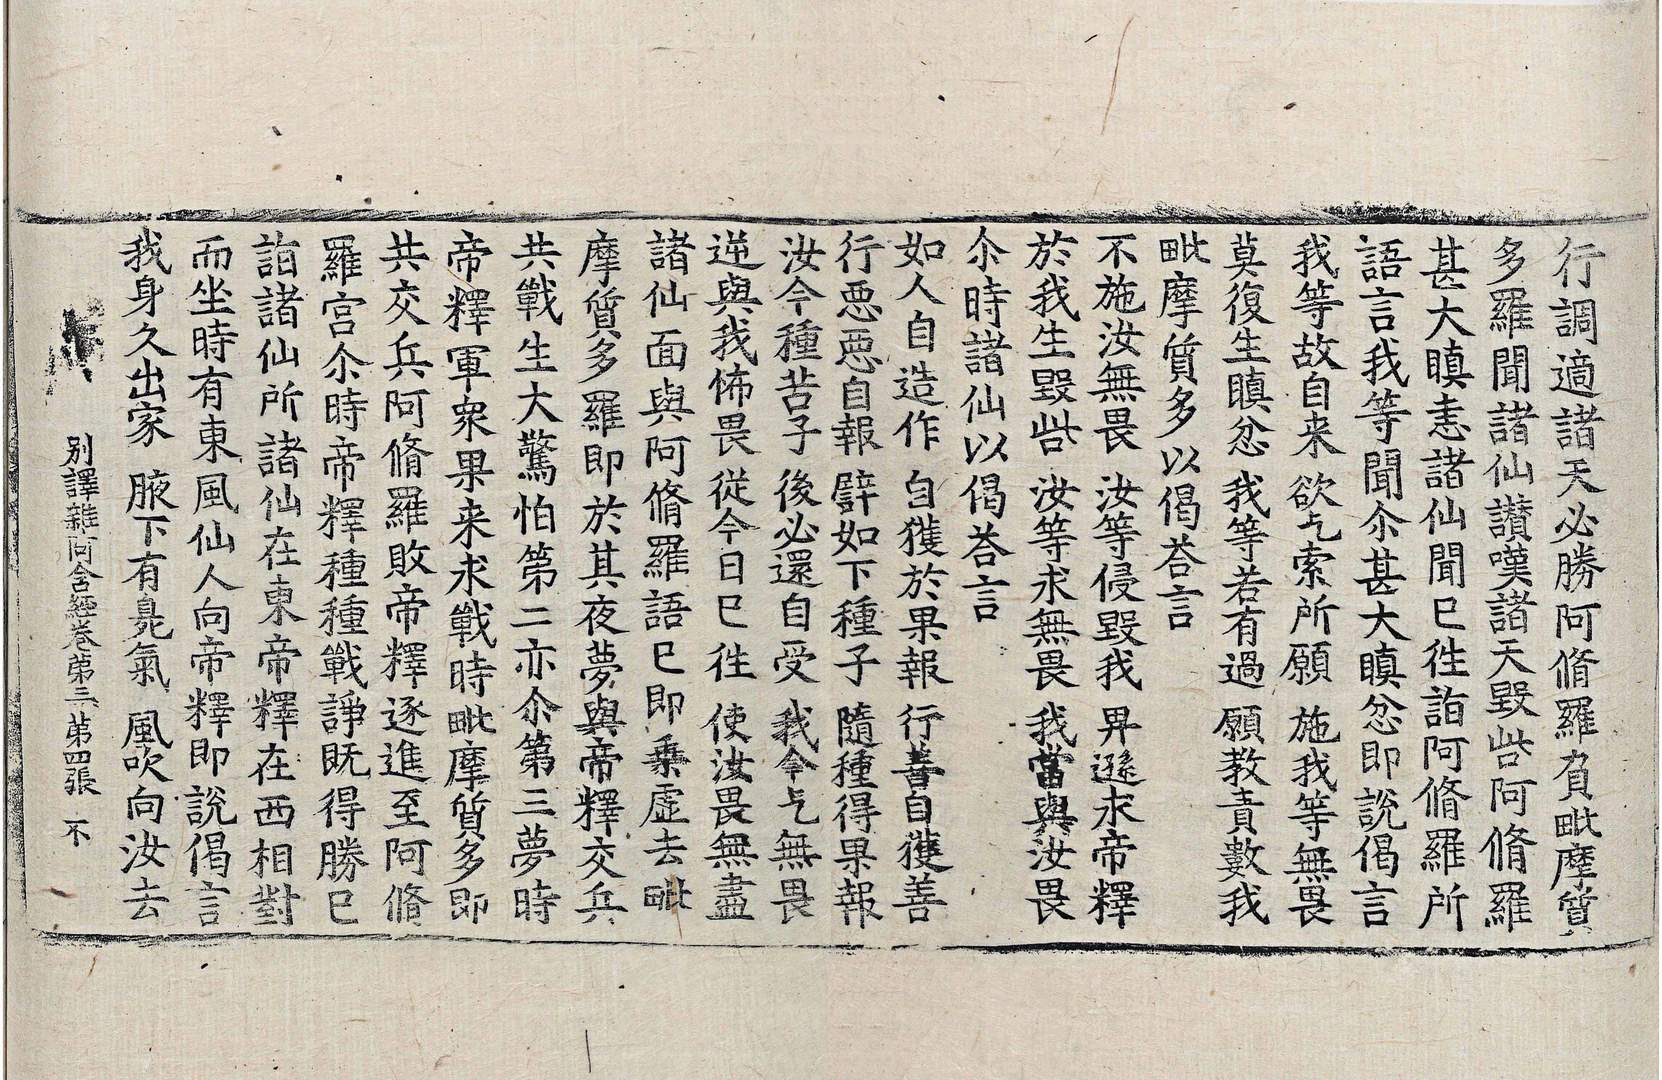 行調適諸天必勝阿脩羅負毗摩質
多羅聞諸仙讃嘆諸天毀呰阿脩羅
甚大瞋恚諸仙聞已徃詣阿脩羅所
語言我等聞尒甚大瞋忿即說偈言
我等故自来 欲乞索所願 施我等無畏
莫復生瞋忿 我等若有過 願教責數我
毗摩質多以偈荅言
不施汝無畏 汝等侵毀我 畀遜求帝釋
於我生毀呰 汝等求無畏 我當與汝畏
尒時諸仙以偈荅言
如人自造作 自獲於果報 行善自獲善
行惡惡自報 譬如下種子 隨種得果報
汝今種苦子 後必還自受 我今乞無畏
逆與我怖畏 從今日已徃 使汝畏無盡
諸仙面與阿脩羅語已即乗虛去毗
摩質多羅即於其夜夢與帝釋交兵
共戰生大驚怕第二亦尒第三夢時
帝釋軍衆果来求戰時毗摩質多即
共交兵阿脩羅敗帝釋逐進至阿脩
羅宫尒時帝釋種種戰諍既得勝已
詣諸仙所諸仙在東帝釋在西相對
而坐時有東風仙人向帝釋即說偈言
我身久出家 腋下有臰氣 風吹向汝去
別譯雜阿含經卷第三 第四張 不